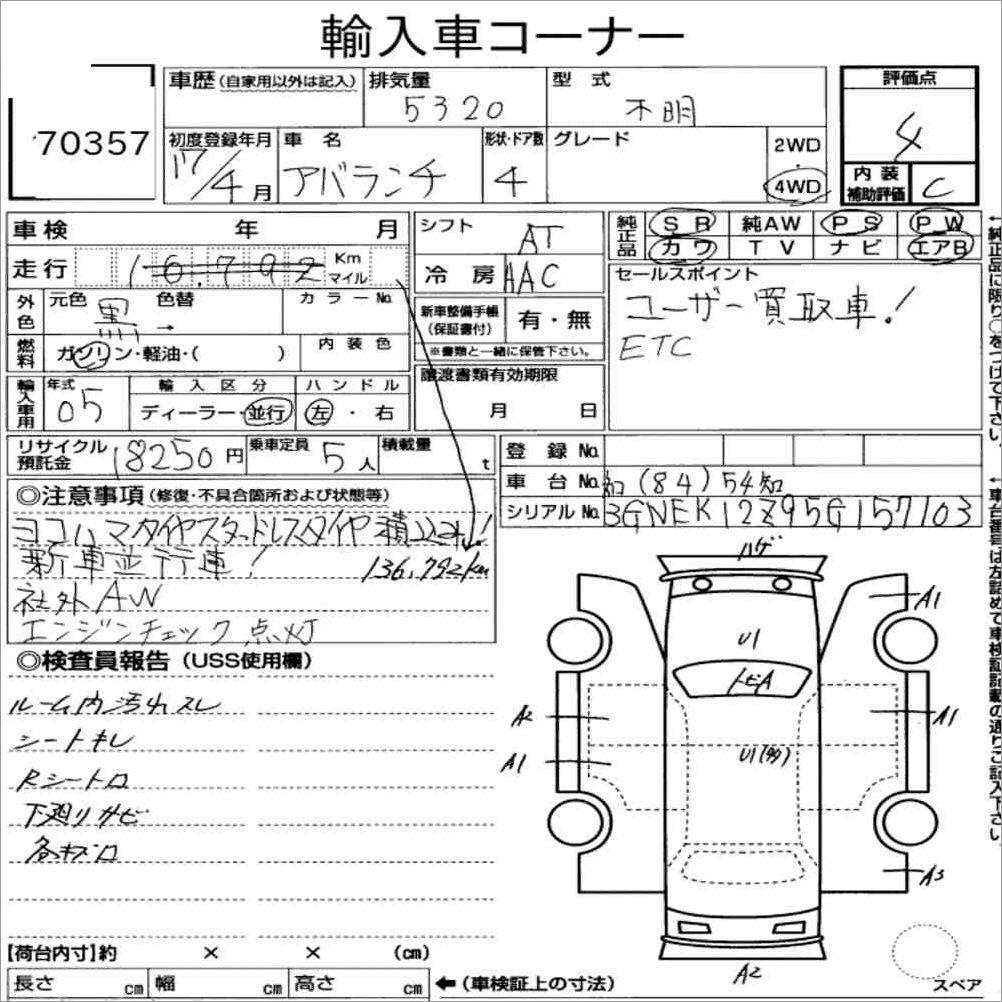 輸入車コーナー
70357
車歴(自家用以外は記入) 排気量 5320 型式 不明
評価点 4
初度登録年月 17/4月 車名 アバランチ 形状・ドア数 4 グレード 2WD・4WD
内装補助評価 C
車検 年 月
シフト AT
純正品 SR 純AW PS PW
カワ TV ナビ エアB
走行 16,792 Km マイル
冷房 AAC
セールスポイント
ユーザー買取車!
ETC
外色 元色 黒 → 色替 カラーNo.
新車整備手帳(保証書付) 有・無
※書類と一緒に保管下さい。
燃料 ガソリン・軽油・( ) 内装色
輸入車用 年式 05 輸入区分 ディーラー・並行 ハンドル 左・右
譲渡書類有効期限
月 日
リサイクル預託金 18250円 乗車定員 5人 積載量 t
登録No.
車台No. 知(84)54知
シリアルNo. 3GNEK12Z95G157103
◎注意事項(修復・不具合箇所および状態等)
ヨコハマタイヤスタッドレスタイヤ積込済!
新車並行車! 136,792km
社外AW
エンジンチェック点灯
◎検査員報告(USS使用欄)
ルーム内汚れスレ
シートキレ
Rシート ロ
下廻りサビ
各キズ ロ
ハゲ
A1
U1
トビA
A2
A1
A1
U1(多)
A3
A2
スペア
【荷台内寸】約 × × (cm)
長さ cm 幅 cm 高さ cm ←(車検証上の寸法)
←純正品に限り○をつけて下さい。
←車台番号は左詰めで車検証記載の通りご記入下さい。